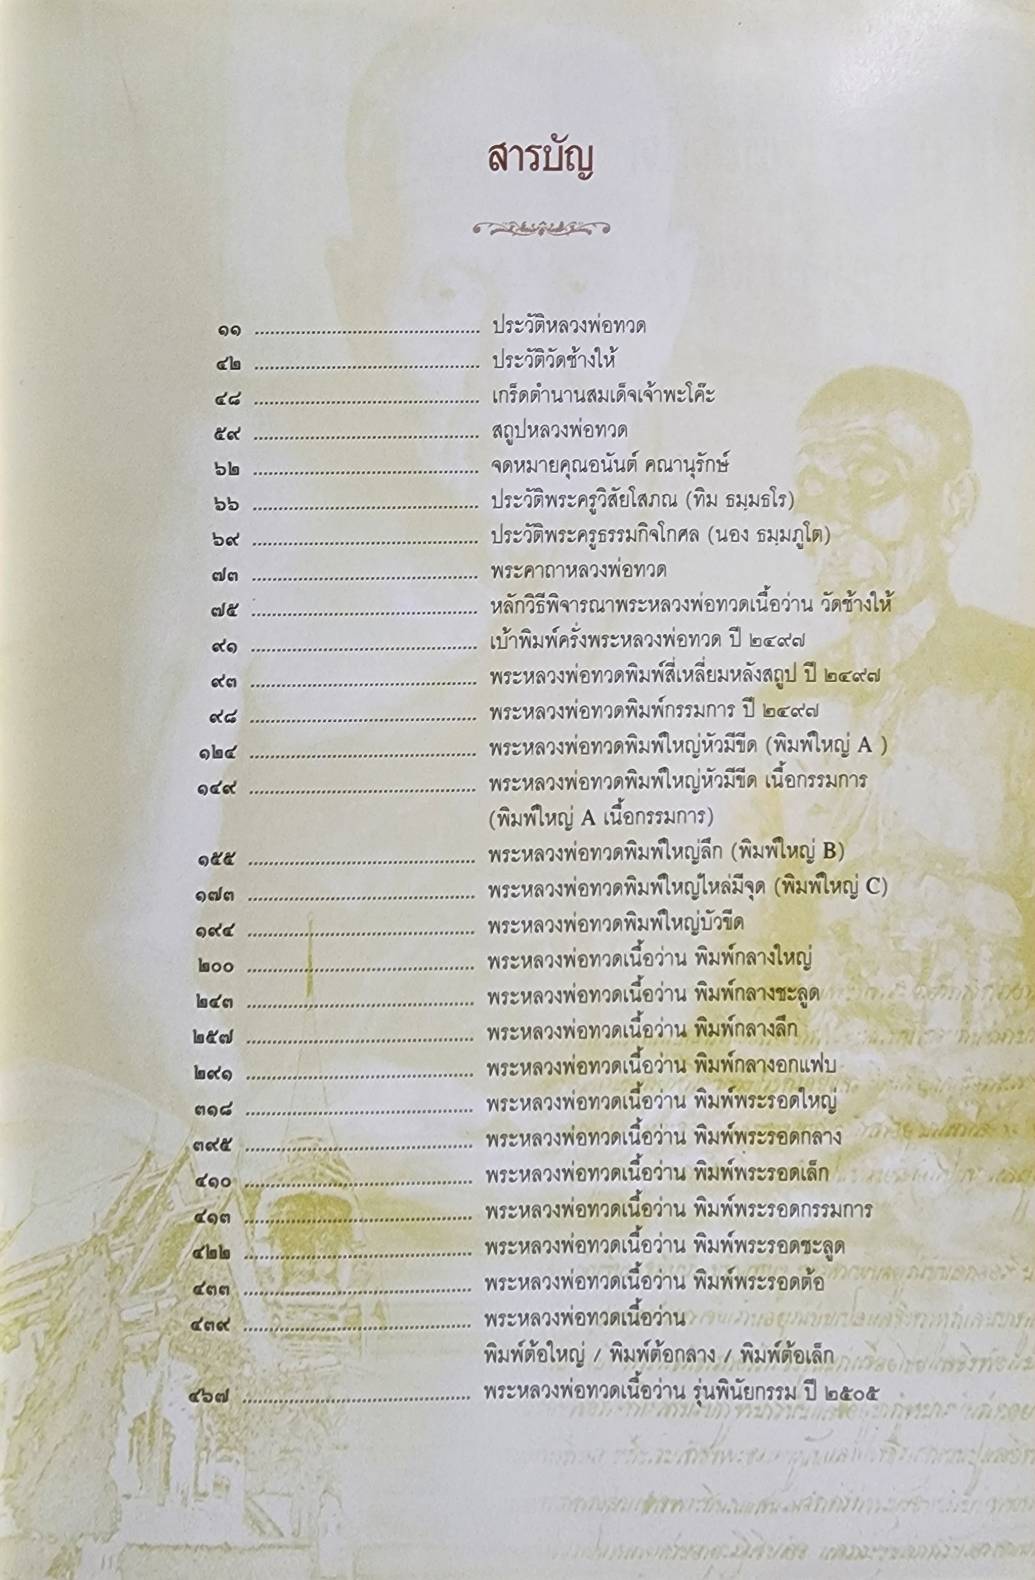 สารบัญ
๑๑ ........................................ ประวัติหลวงพ่อทวด
๔๒ ........................................ ประวัติวัดช้างให้
๔๘ ........................................ เกร็ดตำนานสมเด็จเจ้าพะโค๊ะ
๕๙ ........................................ สถูปหลวงพ่อทวด
๖๒ ........................................ จดหมายคุณอนันต์ คณานุรักษ์
๖๖ ........................................ ประวัติพระครูวิสัยโสภณ (ทิม ธมฺมธโร)
๖๙ ........................................ ประวัติพระครูธรรมกิจโกศล (นอง ธมฺมภูโต)
๗๓ ........................................ พระคาถาหลวงพ่อทวด
๗๕ ........................................ หลักวิธีพิจารณาพระหลวงพ่อทวดเนื้อว่าน วัดช้างให้
๙๑ ........................................ เบ้าพิมพ์ครั่งพระหลวงพ่อทวด ปี ๒๔๙๗
๙๓ ........................................ พระหลวงพ่อทวดพิมพ์สี่เหลี่ยมหลังสถูป ปี ๒๔๙๗
๙๘ ........................................ พระหลวงพ่อทวดพิมพ์กรรมการ ปี ๒๔๙๗
๑๒๔ ........................................ พระหลวงพ่อทวดพิมพ์ใหญ่หัวมีขีด (พิมพ์ใหญ่ A )
๑๔๙ ........................................ พระหลวงพ่อทวดพิมพ์ใหญ่หัวมีขีด เนื้อกรรมการ
(พิมพ์ใหญ่ A เนื้อกรรมการ)
๑๕๕ ........................................ พระหลวงพ่อทวดพิมพ์ใหญ่ลึก (พิมพ์ใหญ่ B)
๑๗๓ ........................................ พระหลวงพ่อทวดพิมพ์ใหญ่ไหล่มีจุด (พิมพ์ใหญ่ C)
๑๙๔ ........................................ พระหลวงพ่อทวดพิมพ์ใหญ่บัวขีด
๒๐๐ ........................................ พระหลวงพ่อทวดเนื้อว่าน พิมพ์กลางใหญ่
๒๔๓ ........................................ พระหลวงพ่อทวดเนื้อว่าน พิมพ์กลางชะลูด
๒๕๗ ........................................ พระหลวงพ่อทวดเนื้อว่าน พิมพ์กลางลึก
๒๙๑ ........................................ พระหลวงพ่อทวดเนื้อว่าน พิมพ์กลางอกแฟบ
๓๑๘ ........................................ พระหลวงพ่อทวดเนื้อว่าน พิมพ์พระรอดใหญ่
๓๙๕ ........................................ พระหลวงพ่อทวดเนื้อว่าน พิมพ์พระรอดกลาง
๔๑๐ ........................................ พระหลวงพ่อทวดเนื้อว่าน พิมพ์พระรอดเล็ก
๔๑๓ ........................................ พระหลวงพ่อทวดเนื้อว่าน พิมพ์พระรอดกรรมการ
๔๒๒ ........................................ พระหลวงพ่อทวดเนื้อว่าน พิมพ์พระรอดชะลูด
๔๓๓ ........................................ พระหลวงพ่อทวดเนื้อว่าน พิมพ์พระรอดต้อ
๔๓๙ ........................................ พระหลวงพ่อทวดเนื้อว่าน
พิมพ์ต้อใหญ่ / พิมพ์ต้อกลาง / พิมพ์ต้อเล็ก
๔๖๗ ........................................ พระหลวงพ่อทวดเนื้อว่าน รุ่นพินัยกรรม ปี ๒๕๐๕